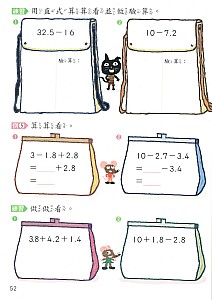 練習 用直式算算看並做驗算。
❶ ❷
32.5－16 10－7.2
驗算： 驗算：
例5 算算看。
❶ ❷
3－1.8＋2.8 10－2.7－3.4
＝＿＿＋2.8 ＝＿＿－3.4
＝ ＝
練習 做做看。
❶ ❷
3.8＋4.2＋1.4 10＋1.8－2.8
52